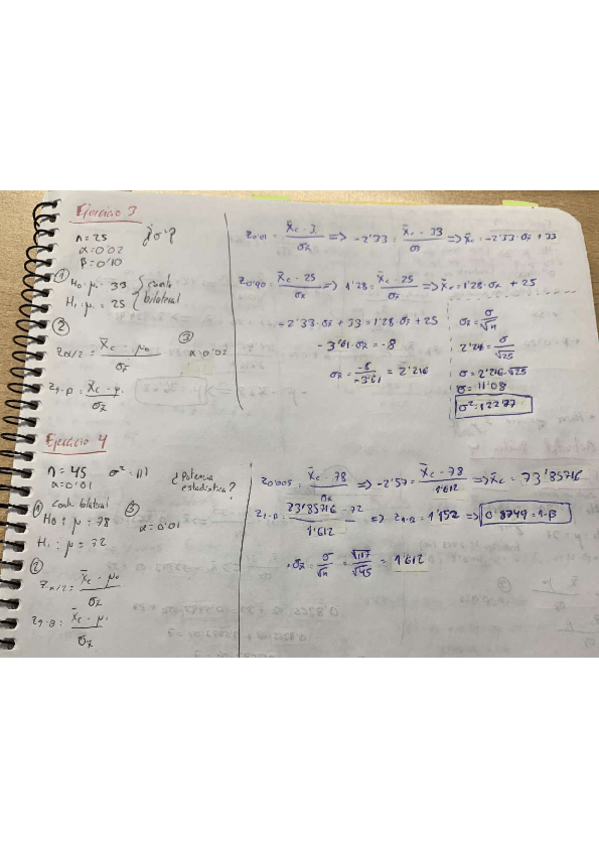 Ejercicio 3
n = 25 ¿σ²?
α = 0'02
β = 0'10
① H₀: μ = 33 } cont.
H₁: μ = 25 } bilateral
②
Z_{α/2} = (X̄c - μ₀)/σx̄
③ α = 0'02
Z_{1-β} = (X̄c - μ₁)/σx̄
Z_{0'01} = (X̄c - 3)/σx̄ => -2'33 = (X̄c - 33)/σx̄ => X̄c = -2'33·σx̄ + 33
Z_{0'90} = (X̄c - 25)/σx̄ => 1'28 = (X̄c - 25)/σx̄ => X̄c = 1'28·σx̄ + 25
-2'33·σx̄ + 33 = 1'28·σx̄ + 25
-3'61·σx̄ = -8
σx̄ = -8/-3'61 = 2'216
σx̄ = σ/√n
2'216 = σ/√25
σ = 2'216·√25
σ = 11'08
σ² = 122'77
Ejercicio 4
n = 45 σ² = 117 ¿Potencia
α = 0'01 estadística?
① Cont. bilateral
H₀: μ = 78
H₁: μ = 72
③ α = 0'01
②
Z_{α/2} = (X̄c - μ₀)/σx̄
Z_{1-β} = (X̄c - μ₁)/σx̄
Z_{0'005} = (X̄c - 78)/σx̄ => -2'57 = (X̄c - 78)/1'612 => X̄c = 73'85716
Z_{1-β} = (73'85716 - 72)/1'612 => Z_{1-β} = 1'152 => 0'8749 = 1-β
σx̄ = σ/√n = √117/√45 = 1'612